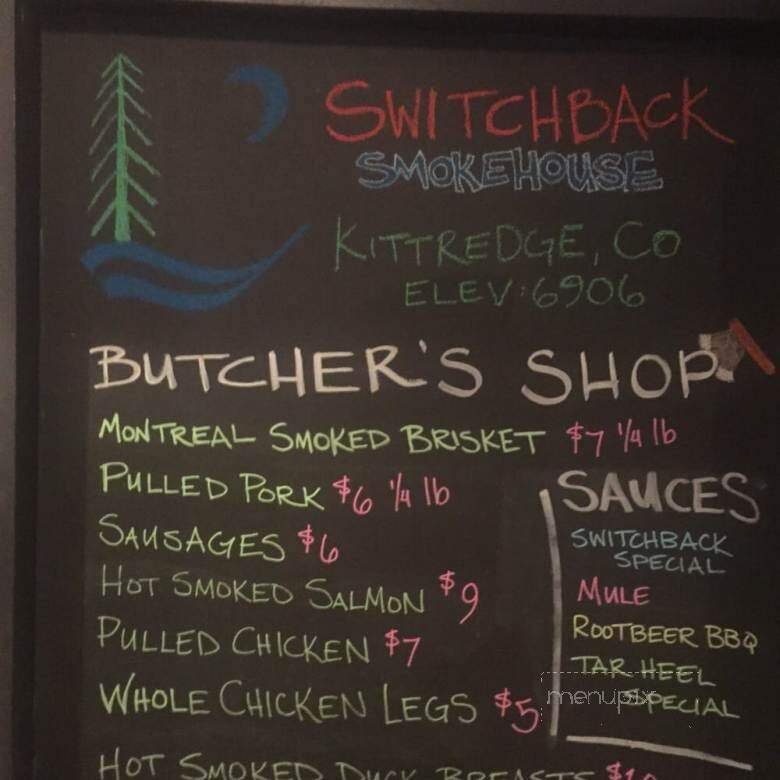 SWITCHBACK
SMOKEHOUSE
KITTREDGE, CO
ELEV: 6906
BUTCHER'S SHOP
MONTREAL SMOKED BRISKET $7 1/4 lb
PULLED PORK $6 1/4 lb
SAUSAGES $6
HOT SMOKED SALMON $9
PULLED CHICKEN $7
WHOLE CHICKEN LEGS $5
HOT SMOKED DUCK BREASTS
SAUCES
SWITCHBACK
SPECIAL
MULE
ROOTBEER BBQ
TAR HEEL
SPECIAL
menupix